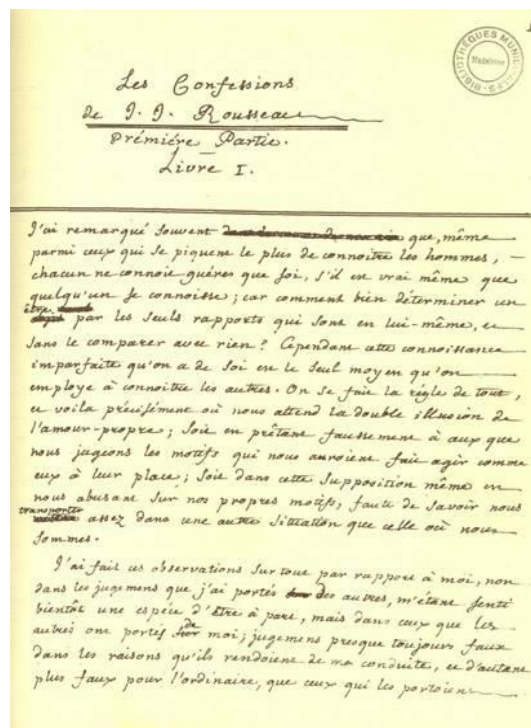 1
BIBLIOTHÈQUES MUNICIPALES
Madeleine
Les Confessions
de J. J. Rousseau
Prémiére Partie.
Livre I.
J'ai remarqué souvent que, même
parmi ceux qui se piquent le plus de connoitre les hommes, —
chacun ne connoit guéres que soi, s'il est vrai même que
quelqu'un se connoisse ; car comment bien déterminer un
être par les seuls rapports qui sont en lui-même, et
sans le comparer avec rien ? Cependant cette connoissance
imparfaite qu'on a de soi est le seul moyen qu'on
employe à connoitre les autres. On se fait la régle de tout,
et voila précisément où nous attend la double illusion de
l'amour-propre ; soit en prêtant faussement à ceux que
nous jugeons les motifs qui nous auroient fait agir comme
eux à leur place ; soit dans cette supposition même en
nous abusant sur nos propres motifs, faute de savoir nous
transporter assez dans une autre situation que celle où nous
sommes.
J'ai fait ces observations surtout par rapport à moi, non
dans les jugemens que j'ai portés des autres, m'étant senti
bientot une espéce d'être à part, mais dans ceux que les
autres ont portés de moi ; jugemens presque toujours faux
dans les raisons qu'ils rendoient de ma conduite, et d'autant
plus faux pour l'ordinaire, que ceux qui les portoient